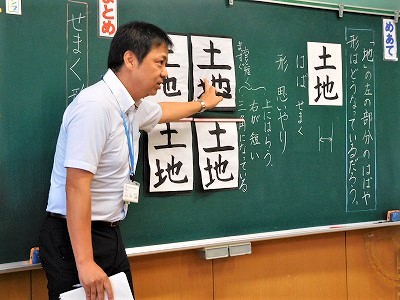 めあて
「地」の左の部分のはばや
形はどうなっているだろう。
土地
はば せまく
形 思いやり
上にはらう
右が短い
三角になっている
土地
土地
土地
土地
まとめ
せまく 形